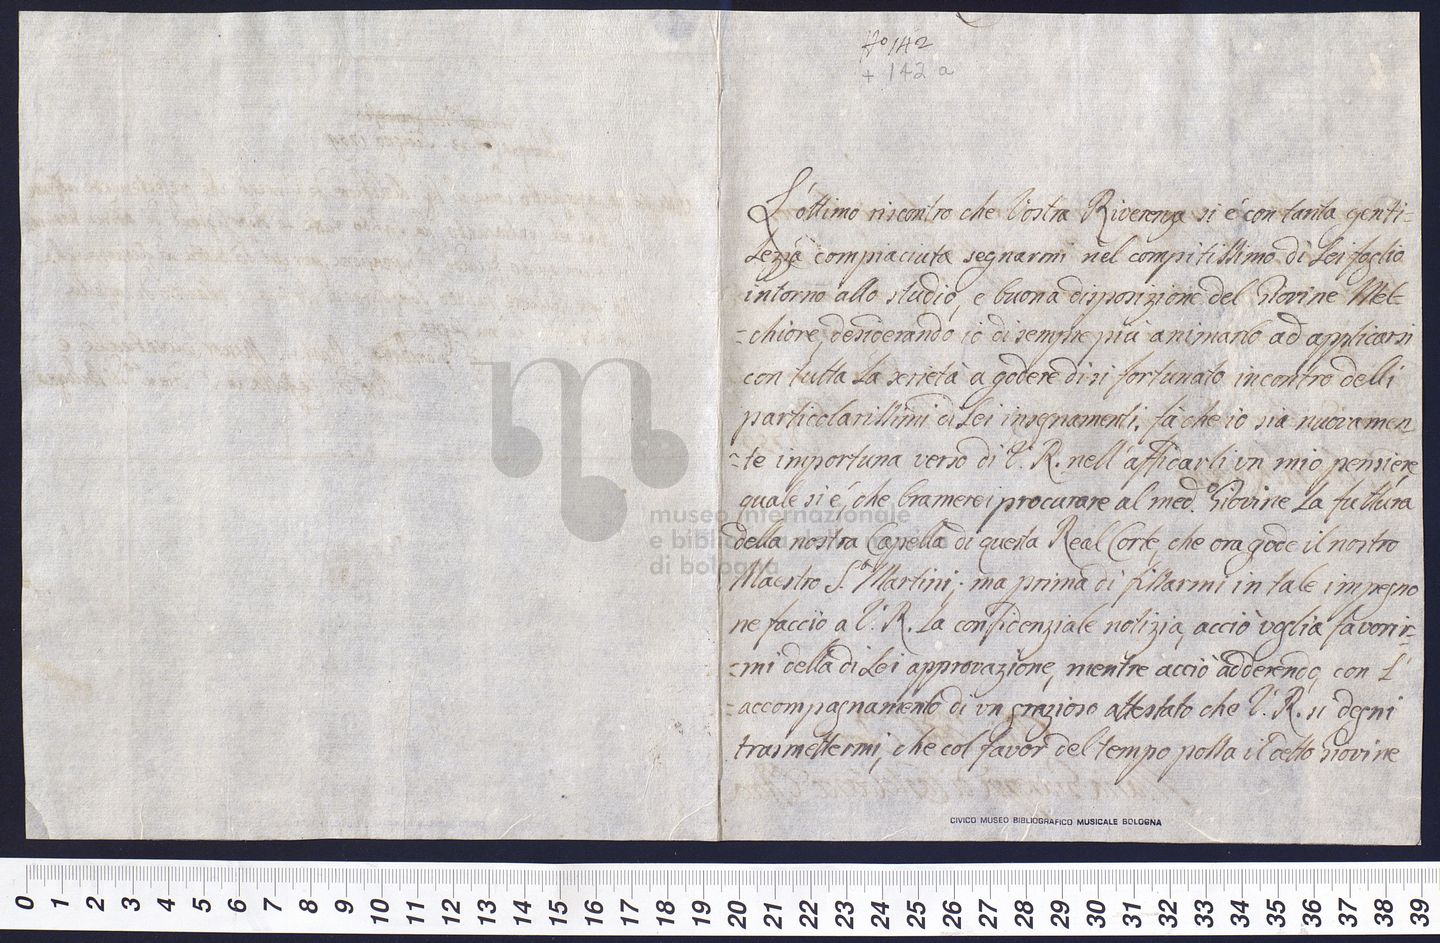 Nº 142
+ 142 a
L'ottimo riscontro che Vostra Riverenza si é con tanta genti-
lezza compiaciuta segnarmi nel compitissimo di Lei foglio
intorno allo studio, e buona disposizione del Giovine Mel-
-chiore, desiderando io di sempre più animarlo ad applicarsi
con tutta la serietà a godere di si fortunato incontro delli
particolarissimi di Lei insegnamenti, fà che io sia nuovamen-
-te importuna verso di V. R. nell' affidarli un mio pensiere
quale si é, che bramerei procurare al med.º Giovine la futtura
della nostra Capella di questa Real Corte, che ora gode il nostro
Maestro S. Martini; ma prima di fissarmi in tale impegno
ne faccio a V. R. la confidenziale notizia, acciò voglia favorir-
-mi della di Lei approvazione, mentre acciò adderendo, con l'
-accompagnamento di un grazioso attestato che V. R. si degni
trasmettermi, che col favor del tempo possa il detto Giovine
museo internazionale
e biblioteca della musica
di bologna
CIVICO MUSEO BIBLIOGRAFICO MUSICALE BOLOGNA
0 1 2 3 4 5 6 7 8 9 10 11 12 13 14 15 16 17 18 19 20 21 22 23 24 25 26 27 28 29 30 31 32 33 34 35 36 37 38 39